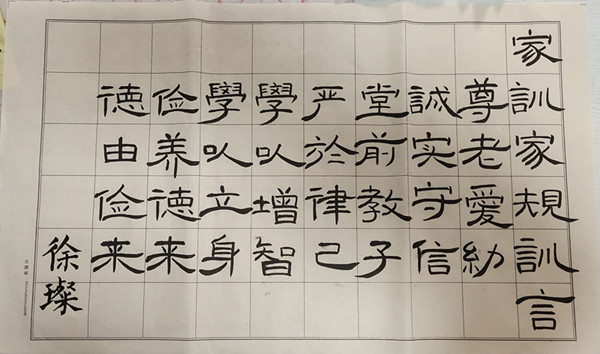 家訓家規訓言
尊老愛幼
誠实守信
堂前教子
严於律己
學以增智
學以立身
俭养德来
德由俭来
徐璨